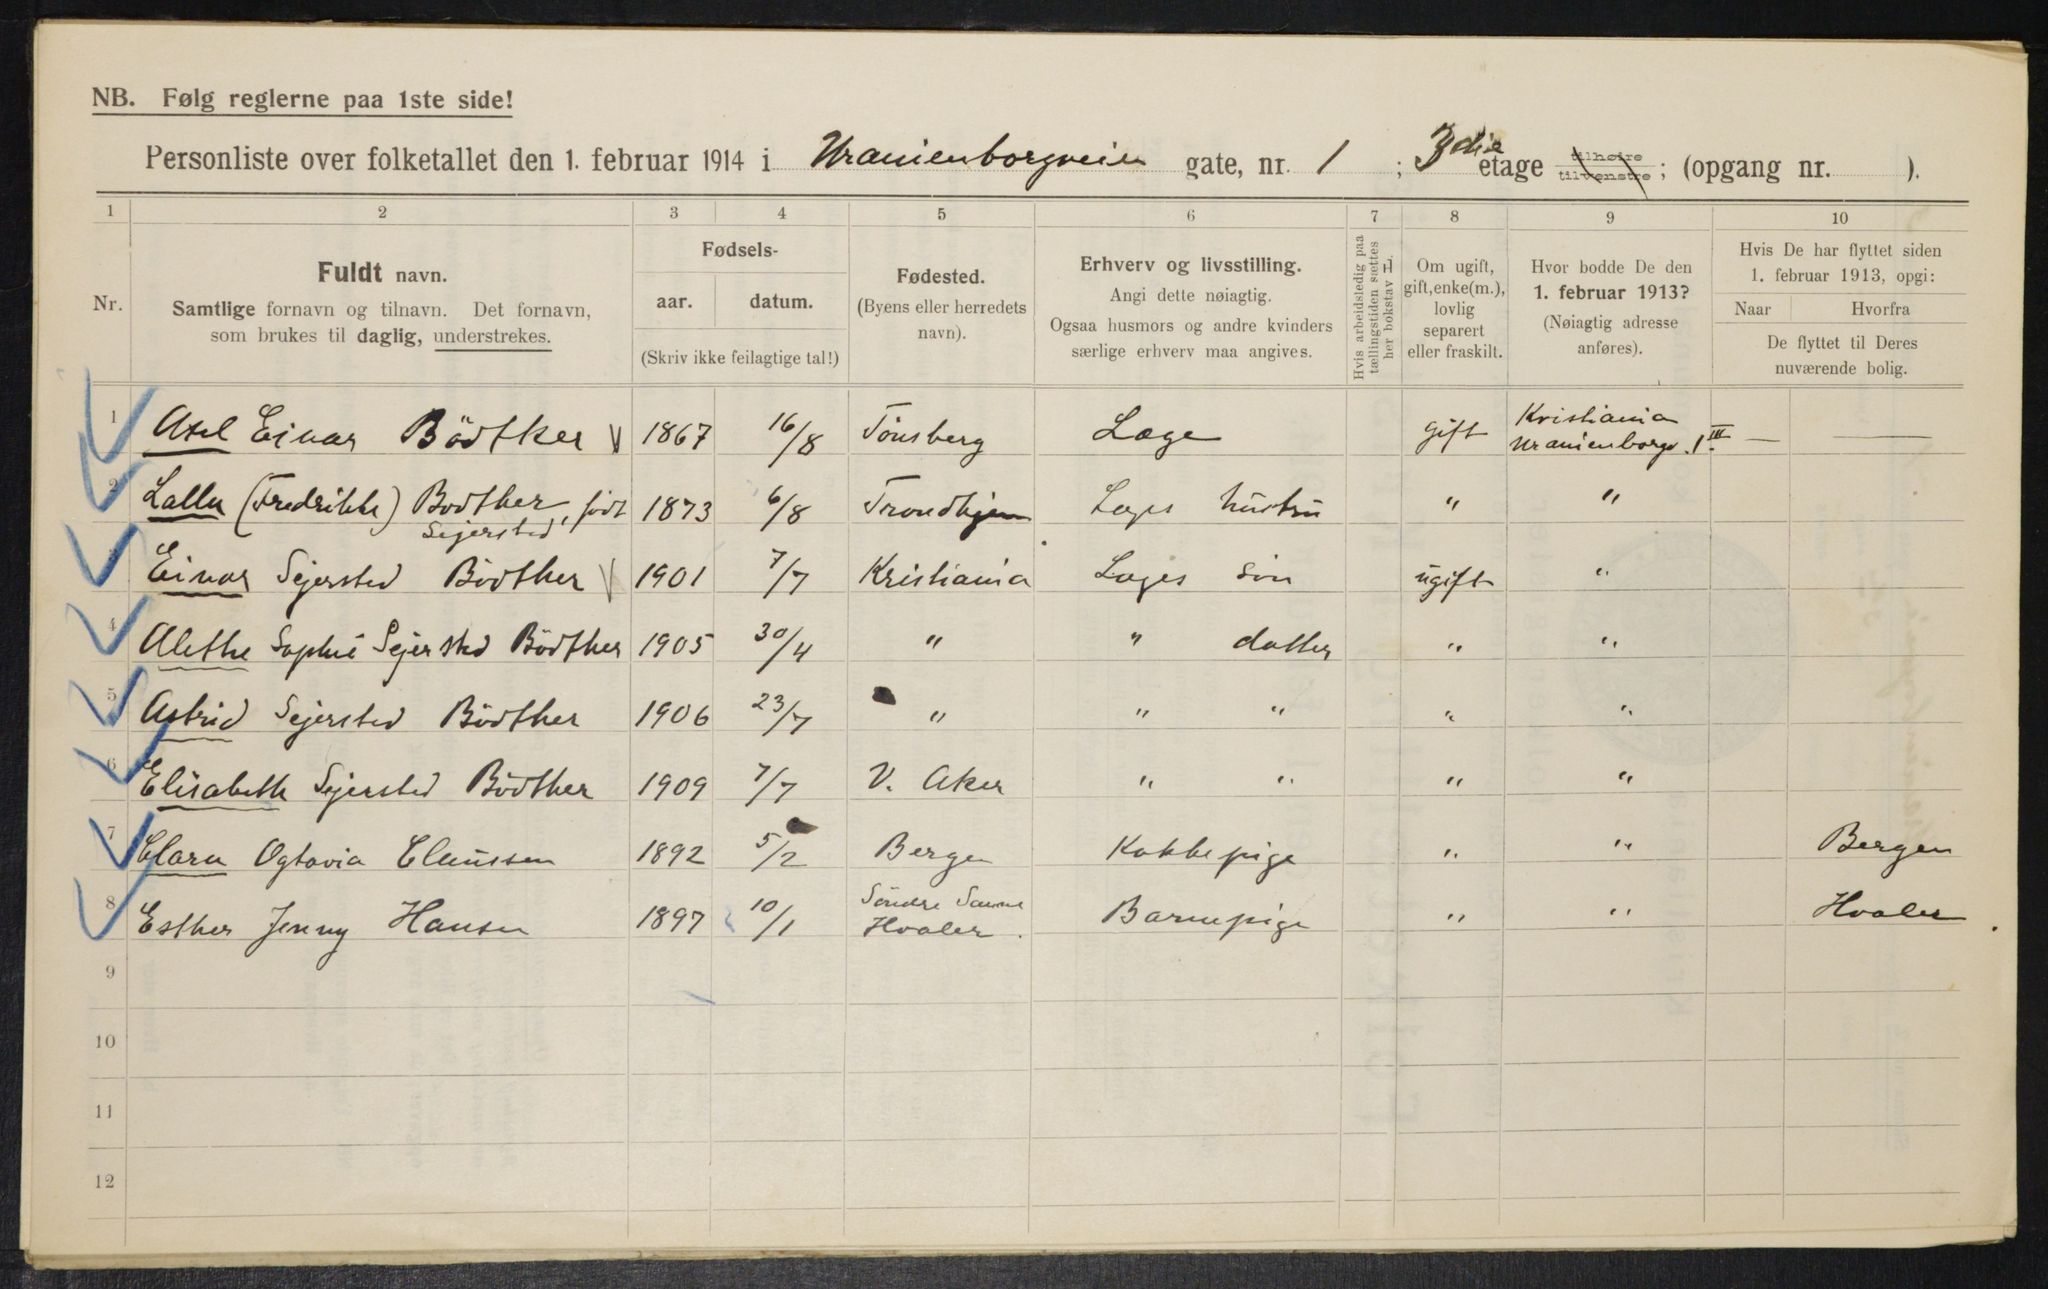 NB. Følg reglerne paa 1ste side!
Personliste over folketallet den 1. februar 1914 i Uranienborgveien gate, nr. 1 ; 3die etage tilhøire tilvenstre; (opgang nr. ).
1 2 3 4 5 6 7 8 9 10
Nr.
Fuldt navn.
Samtlige fornavn og tilnavn. Det fornavn,
som brukes til daglig, understrekes.
Fødsels-
aar. datum.
(Skriv ikke feilagtige tal!)
Fødested.
(Byens eller herredets
navn).
Erhverv og livsstilling.
Angi dette nøiagtig.
Ogsaa husmors og andre kvinders
særlige erhverv maa angives.
Hvis arbeidsledig paa
tællingstiden sættes
her bokstav L.
Om ugift,
gift, enke(m.),
lovlig
separert
eller fraskilt.
Hvor bodde De den
1. februar 1913?
(Nøiagtig adresse
anføres).
Hvis De har flyttet siden
1. februar 1913, opgi:
Naar Hvorfra
De flyttet til Deres
nuværende bolig.
1 Axel Einar Bödtker 1867 16/8 Tönsberg Læge gift Kristiania
Uranienborgv. 1 III — —
2 Lalla (Fredrikke) Bödtker, födt 1873 6/8 Trondhjem Læges hustru " "
Sejersted
3 Einar Sejersted Bödtker 1901 7/7 Kristiania Læges sön ugift "
4 Alethe Sophie Sejersted Bödtker 1905 30/4 " " datter " "
5 Astrid Sejersted Bödtker 1906 23/7 " " " " "
6 Elisabeth Sejersted Bödtker 1909 7/7 V. Aker " " " "
7 Clara Ogtavia Claussen 1892 5/2 Bergen Kokkepige " " Bergen
8 Esther Jenny Hansen 1897 10/1 Söndre Sandö
Hvaler. Barnepige " " Hvaler.
9
10
11
12